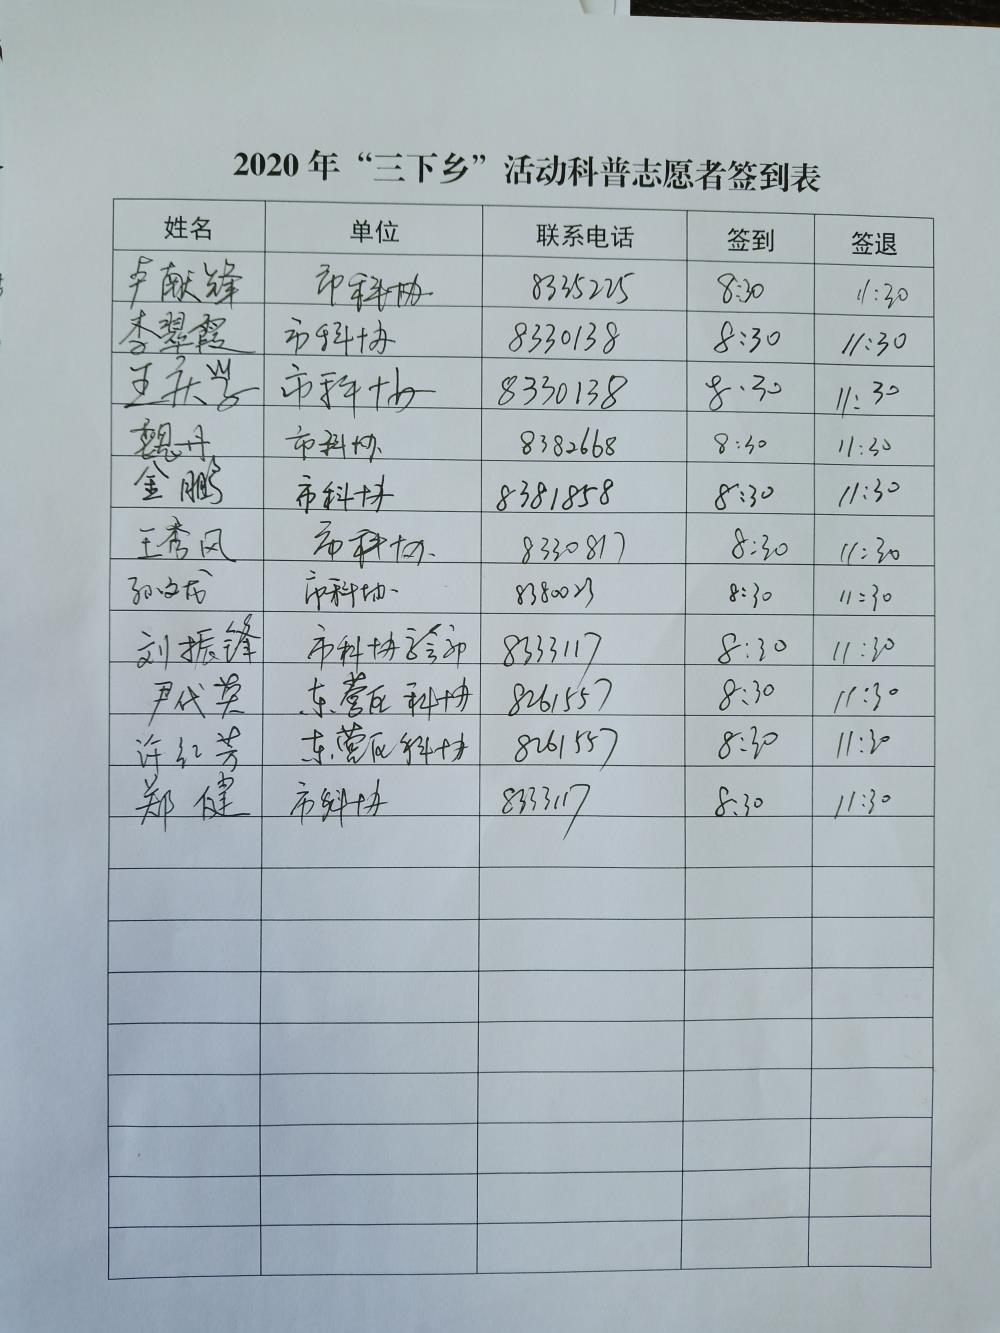 2020 年 “三下乡” 活动科普志愿者签到表
姓名 单位 联系电话 签到 签退
卢献锋 市科协 8335225 8:30 11:30
李翠霞 市科协 8330138 8:30 11:30
王庆学 市科协 8330138 8:30 11:30
魏丹 市科协 8382668 8:30 11:30
金鹏 市科协 8381858 8:30 11:30
王秀风 市科协 8330817 8:30 11:30
孙文成 市科协 8380023 8:30 11:30
刘振锋 市科协 8333117 8:30 11:30
尹代英 东营区科协 8261557 8:30 11:30
许红芳 东营区科协 8261557 8:30 11:30
郑健 市科协 8333117 8:30 11:30